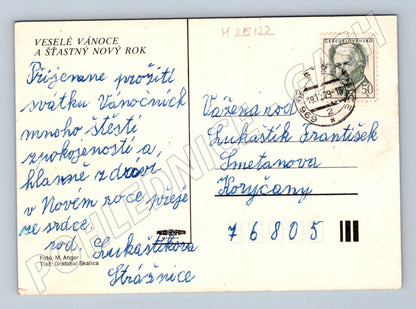 M 215122
VESELÉ VÁNOCE
A ŠŤASTNÝ NOVÝ ROK
Příjemné prožití
svátků Vánočních
mnoho štěstí
spokojenosti a,
hlavně zdraví
v Novém roce přeje
ze srdce.
rod. Lukaštíkova
Strážnice
Foto: M. Anger
Tlač: Grafobal Skalica
ČESKOSLOVENSKO
50
Vážená rod
Lukaštík František
Smetanova
Koryčany
76805
POHLEDNICE